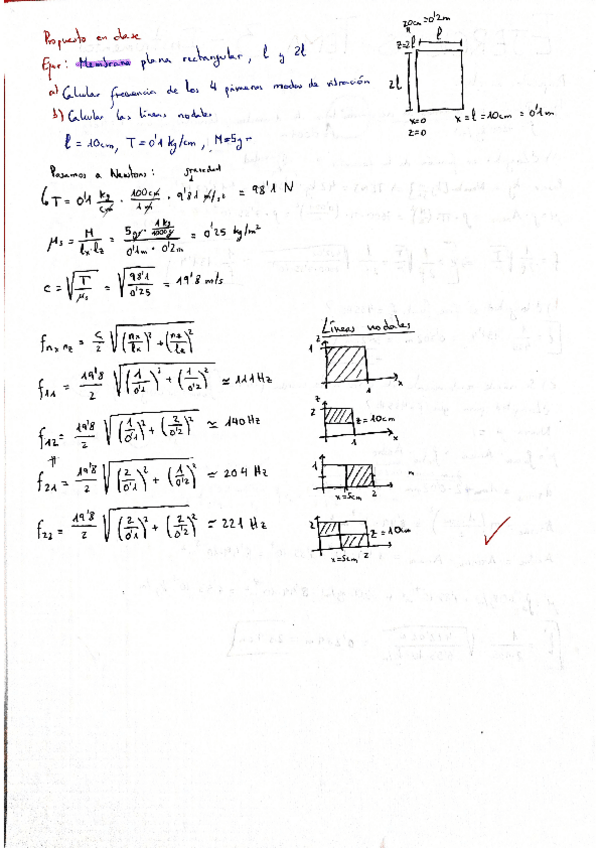 Propuesto en clase
Ejer: Membrana plana rectangular, l y 2l
a) Calcular frecuencia de los 4 primeros modos de vibración
b) Calcular las líneas nodales
l = 10cm, T = 0'1 kg/cm, M=5gr
20cm = 0'2m
z=2l
l
2l
x=0
z=0
x = l = 10cm = 0'1m
Pasamos a Newtons:
gravedad
T = 0'1 kg/cm · 100cm/1m · 9'81 m/s² = 98'1 N
μs = M/(lx·lz) = (5gr · 1kg/1000g)/(0'1m · 0'2m) = 0'25 kg/m²
c = √(T/μs) = √(98'1/0'25) = 19'8 m/s
f nx nz = c/2 √((nx/lx)² + (nz/lz)²)
f11 = 19'8/2 √((1/0'1)² + (1/0'2)²) ≃ 111 Hz
f12 = 19'8/2 √((1/0'1)² + (2/0'2)²) ≃ 140 Hz
f21 = 19'8/2 √((2/0'1)² + (1/0'2)²) ≃ 204 Hz
f22 = 19'8/2 √((2/0'1)² + (2/0'2)²) ≃ 221 Hz
Líneas nodales
z
1
1
x
z
2
z = 10cm
1
x
1
x=5cm
2
2
z = 10cm
x=5cm
2